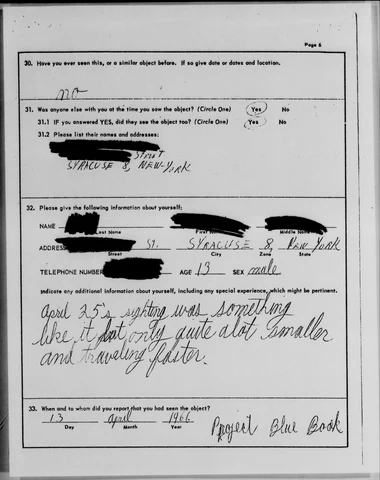 Page 6
30. Have you ever seen this, or a similar object before. If so give date or dates and location.
no
31. Was anyone else with you at the time you saw the object? (Circle One) Yes No
31.1 IF you answered YES, did they see the object too? (Circle One) Yes No
31.2 Please list their names and addresses:
STREET
SYRACUSE 8, NEW-YORK
32. Please give the following information about yourself:
NAME
Last Name First Name Middle Name
ADDRESS ST. SYRACUSE 8, NEW YORK
Street City Zone State
TELEPHONE NUMBER AGE 13 SEX male
Indicate any additional information about yourself, including any special experience, which might be pertinent.
April 25's sighting was something
like it but only quite alot smaller
and traveling faster.
33. When and to whom did you report that you had seen the object?
13 April 1966 Project Blue Book
Day Month Year